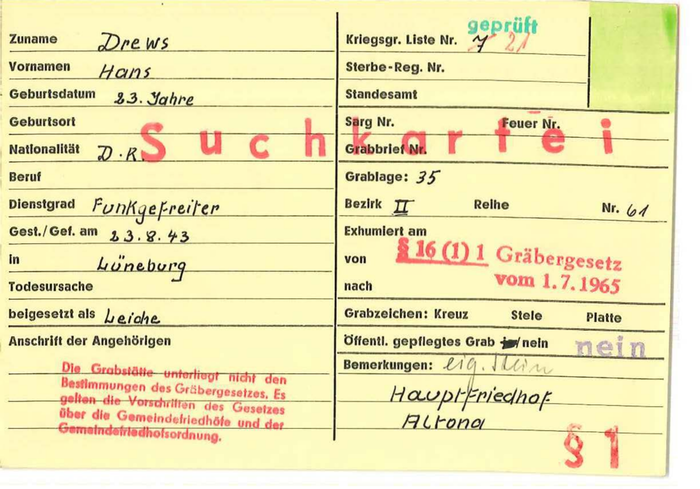 geprüft
Zuname Drews
Vornamen Hans
Geburtsdatum 23. Jahre
Geburtsort
Nationalität D.R.
Beruf
Dienstgrad Funkgefreiter
Gest./Gef. am 23.8.43
in Lüneburg
Todesursache
beigesetzt als Leiche
Anschrift der Angehörigen
Die Grabstätte unterliegt nicht den
Bestimmungen des Gräbergesetzes. Es
gelten die Vorschriften des Gesetzes
über die Gemeindefriedhöfe und der
Gemeindefriedhofsordnung.
Suchkartei
Kriegsgr. Liste Nr. 7 21
Sterbe-Reg. Nr.
Standesamt
Sarg Nr. Feuer Nr.
Grabbrief Nr.
Grablage: 35
Bezirk II Reihe Nr. 61
Exhumiert am
von
nach
§ 16 (1) 1 Gräbergesetz
vom 1.7.1965
Grabzeichen: Kreuz Stele Platte
Öffentl. gepflegtes Grab ja/nein nein
Bemerkungen: eig. Stein
Hauptfriedhof
Altona
§ 1